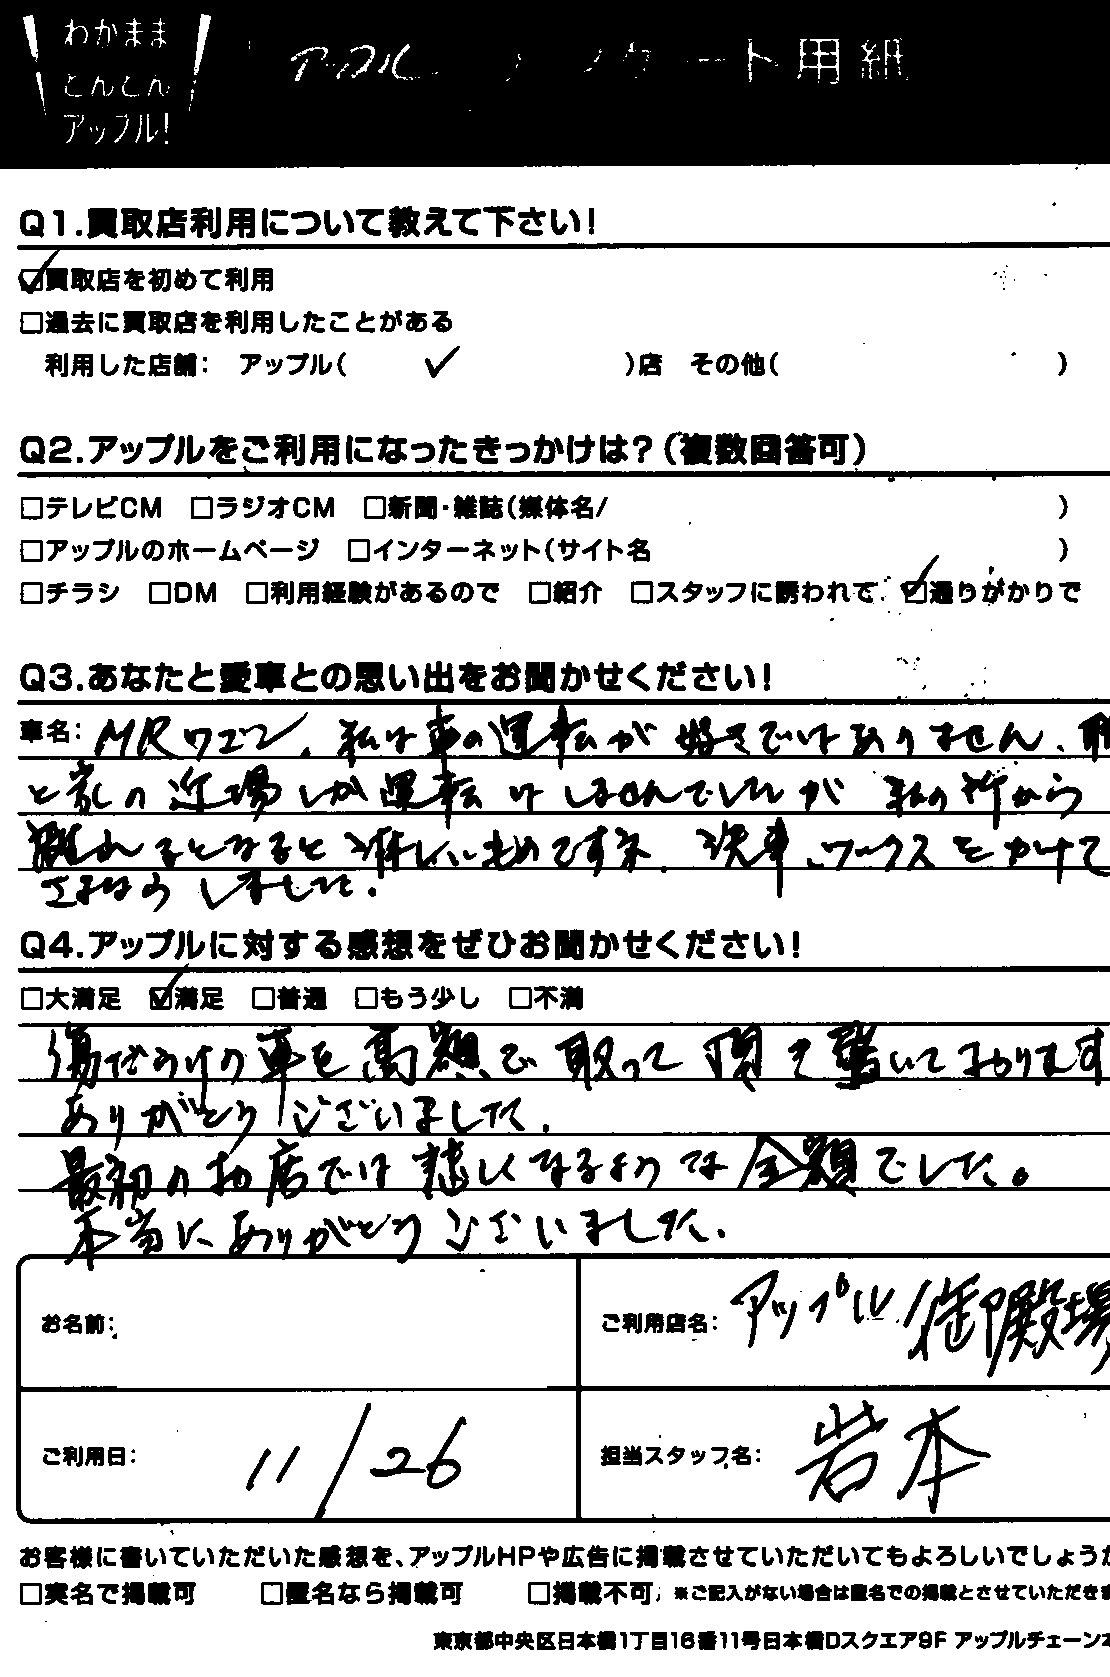 わがまま
どんどん
アップル!
アップル アンケート用紙
Q1.買取店利用について教えて下さい!
☑買取店を初めて利用
□過去に買取店を利用したことがある
利用した店舗: アップル( ✓ )店 その他( )
Q2.アップルをご利用になったきっかけは?(複数回答可)
□テレビCM □ラジオCM □新聞・雑誌(媒体名/ )
□アップルのホームページ □インターネット(サイト名 )
□チラシ □DM □利用経験があるので □紹介 □スタッフに誘われて ☑通りがかりで
Q3.あなたと愛車との思い出をお聞かせください!
車名: MRワゴン、私は車の運転が好きではありません、
と家の近場しか運転はしませんでしたが 私の所から
離れるとなると淋しいものですネ. 洗車、ワックスをかけて
さよなら しました.
Q4.アップルに対する感想をぜひお聞かせください!
□大満足 ☑満足 □普通 □もう少し □不満
傷だらけの車を高額で取って頂き驚いております
ありがとうございました.
最初のお店では悲しくなるような金額でした。
本当にありがとうございました.
お名前:
ご利用店名: アップル御殿場
ご利用日: 11/26
担当スタッフ名: 岩本
お客様に書いていただいた感想を、アップルHPや広告に掲載させていただいてもよろしいでしょうか
□実名で掲載可 □匿名なら掲載可 □掲載不可 ※ご記入がない場合は匿名での掲載とさせていただきま
東京都中央区日本橋1丁目16番11号日本橋Dスクエア9F アップルチェーン本